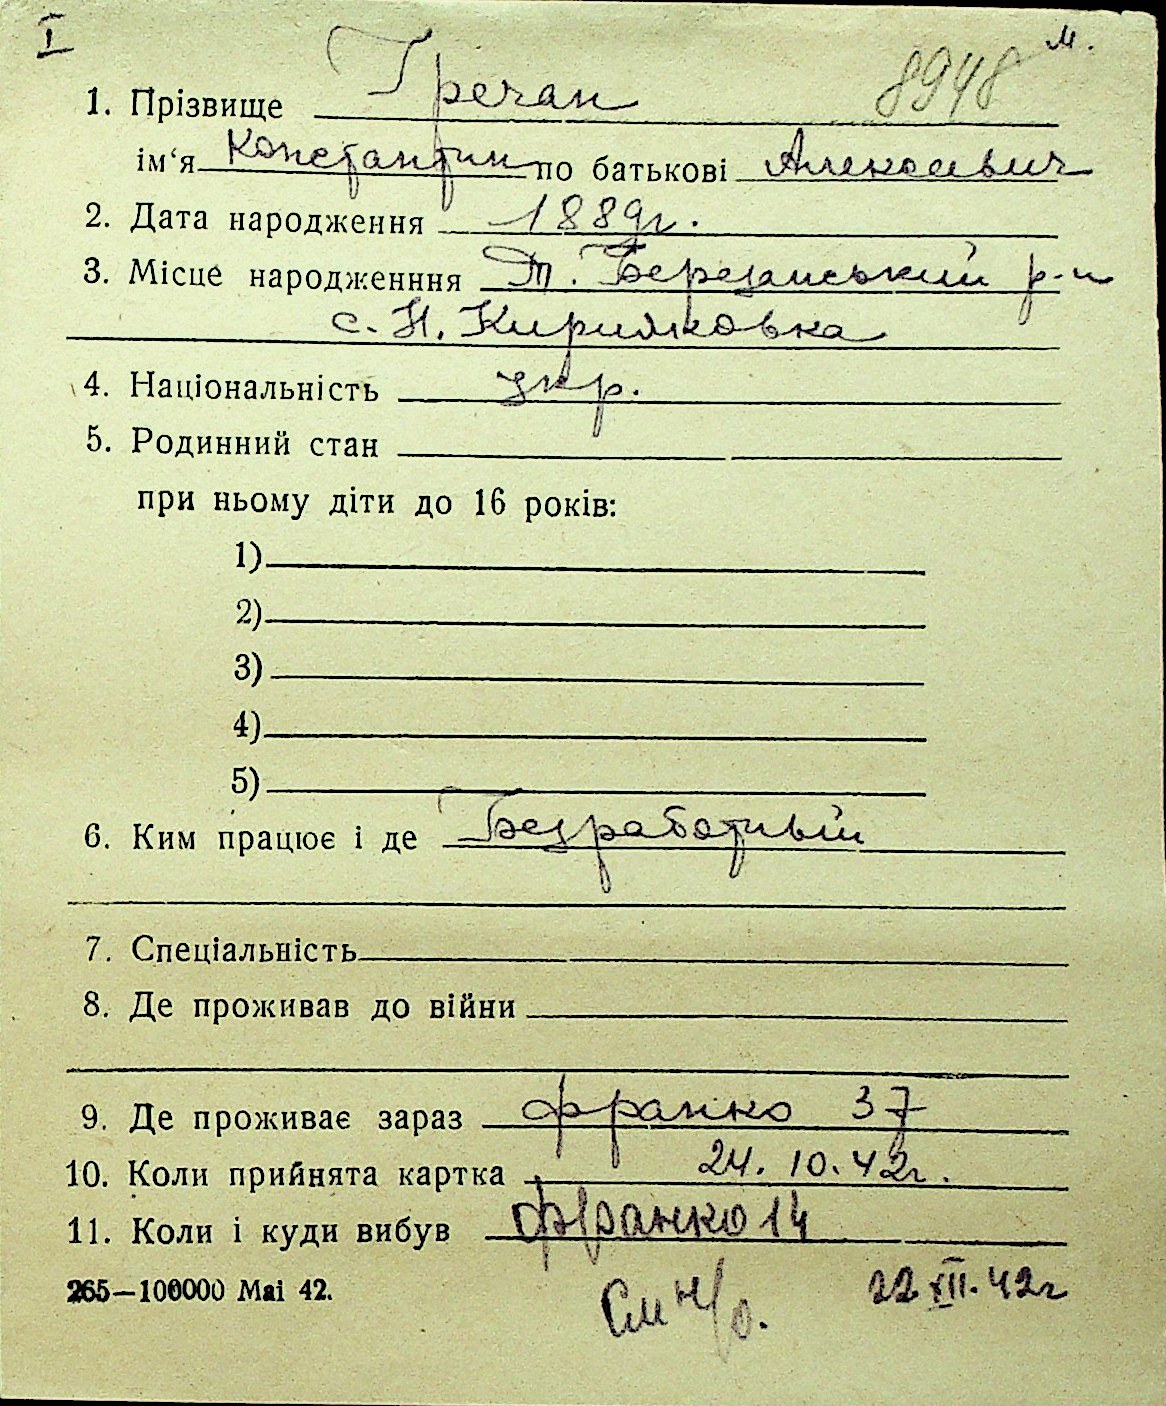 I
м.
8948
1. Прізвище Гречан
ім‘я Константин по батькові Алексеевич
2. Дата народження 1889г.
3. Місце народженння Т. Березанський р-н
с. Н. Киримковка
4. Національність укр.
5. Родинний стан
при ньому діти до 16 років:
1)
2)
3)
4)
5)
6. Ким працює і де Безработный
7. Спеціальність
8. Де проживав до війни
9. Де проживає зараз франко 37
10. Коли прийнята картка 24. 10. 42г.
11. Коли і куди вибув франко 14
265—100000 Mai 42.
См н/о. 22 XII. 42г